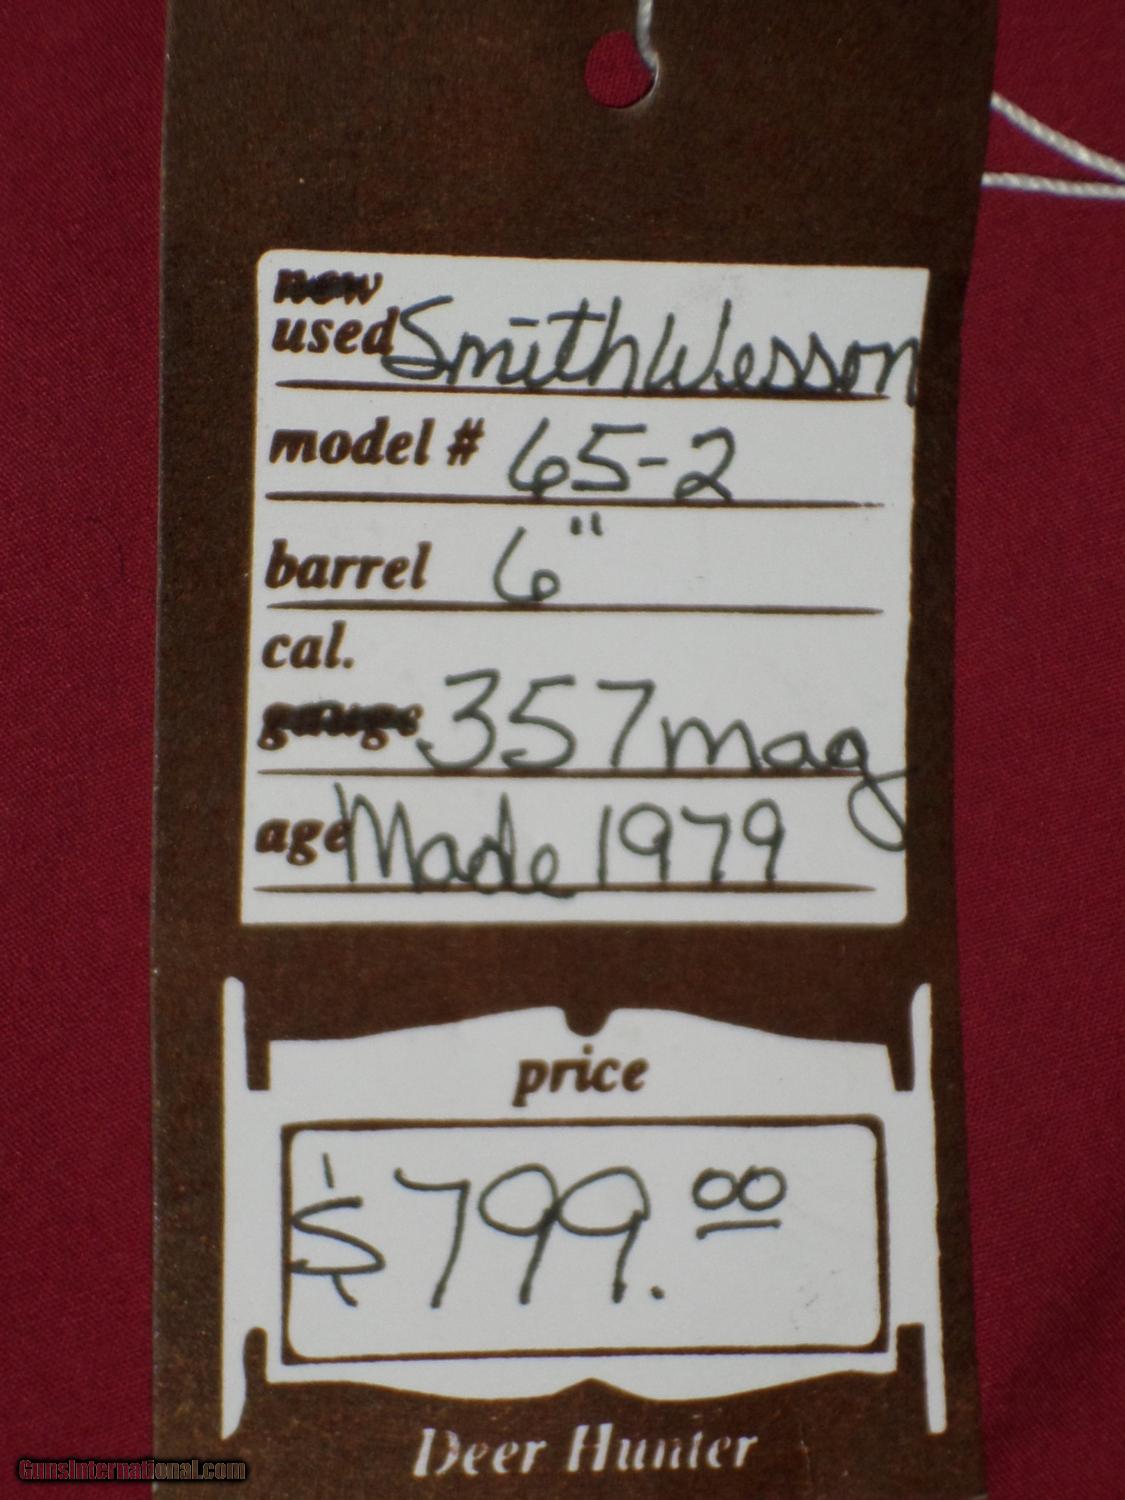 new
used Smith Wesson
model # 65-2
barrel 6"
cal.
gauge .357 mag
age Made 1979
price
$799.00
Deer Hunter
GunsInternational.com